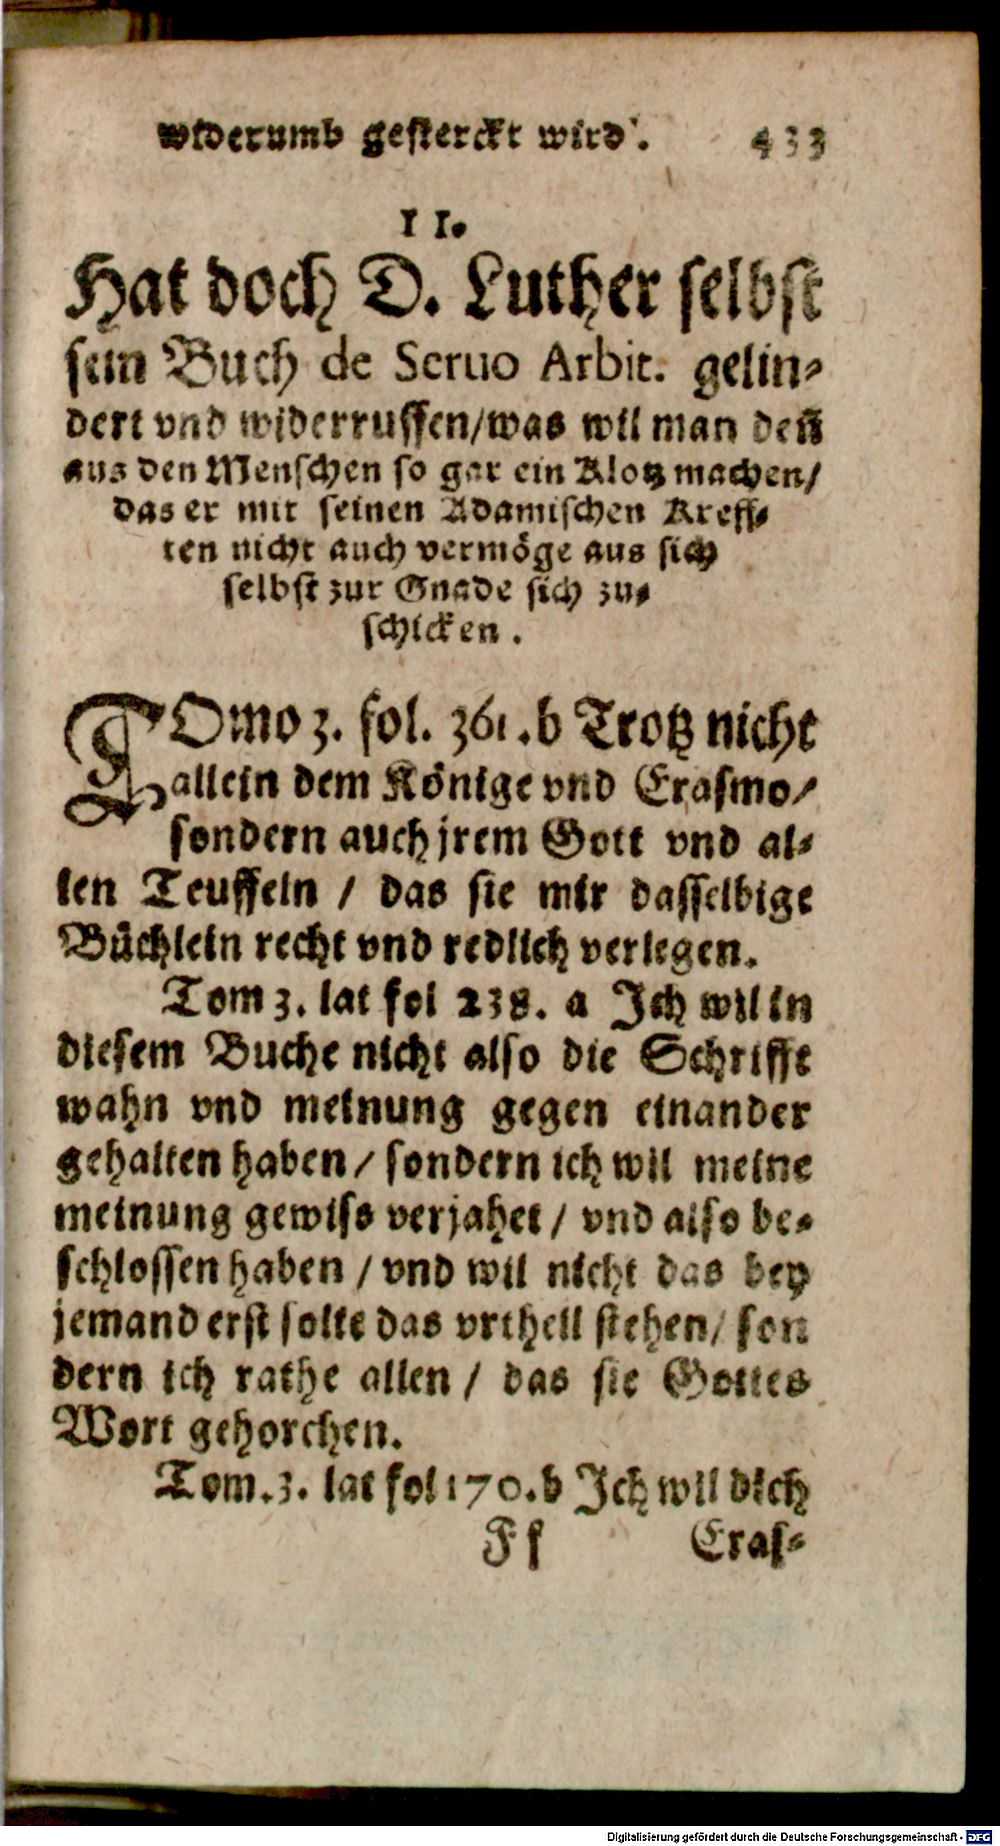 widerumb gesterckt wird. 433
11.
Hat doch D. Luther selbst
sein Buch de Seruo Arbit. gelin-
dert vnd widerruffen/was wil man deñ
aus den Menschen so gar ein Klotz machen/
das er mit seinen Adamischen Kreff-
ten nicht auch vermöge aus sich
selbst zur Gnade sich zu-
schicken.
TOmo 3. fol. 361.b Trotz nicht
allein dem Könige vnd Erasmo/
sondern auch jrem Gott vnd al-
len Teuffeln / das sie mir dasselbige
Büchlein recht vnd redlich verlegen.
Tom 3. lat fol 238. a Ich wil in
diesem Buche nicht also die Schrifft
wahn vnd meinung gegen einander
gehalten haben / sondern ich wil meine
meinung gewiss verjahet / vnd also be-
schlossen haben / vnd wil nicht das bey
jemand erst solte das vrtheil stehen/ son
dern ich rathe allen / das sie Gottes
Wort gehorchen.
Tom.3. lat fol 170.b Ich wil dich
Ff Eras-
Digitalisierung gefördert durch die Deutsche Forschungsgemeinschaft - DFG